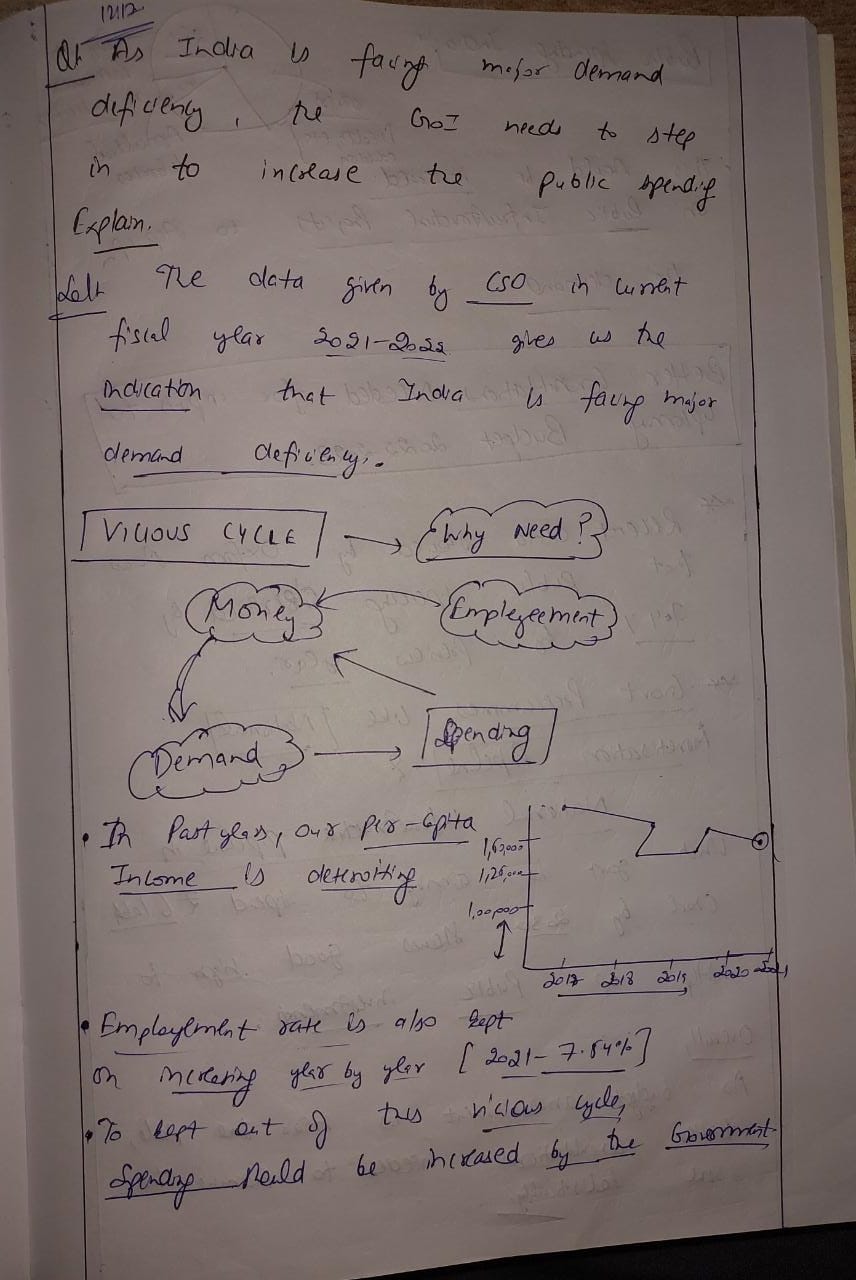 12/12
Q1 As India is facing major demand
deficiency, the GoI needs to step
in to increase the public spending
Explain.
The data given by CSO in current
fiscal year 2021-2022 gives us the
indication that India is facing major
demand deficiency.
VICIOUS CYCLE → Why Need?
Money Employeement
Demand → Spending
• In Past years, our per-capita
Income is deteroiting
1,50,000
1,25,000
1,00,000
2018 2019 2020 2021
• Employement rate is also kept
on increasing year by year [2021- 7.84%]
• To kept out of this vicious cycle,
Spending should be increased by the Government